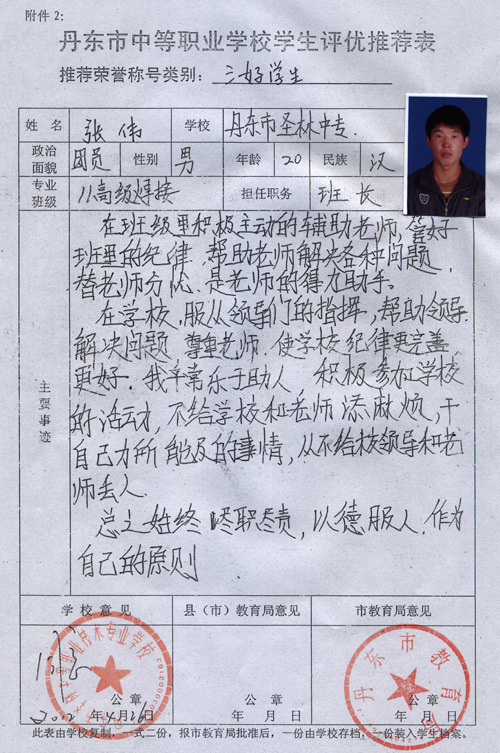 附件2:
丹东市中等职业学校学生评优推荐表
推荐荣誉称号类别: 三好学生
姓 名 张伟 学校 丹东市圣林中专.
政治面貌 团员 性别 男 年龄 20 民族 汉
专业班级 11高级焊接 担任职务 班长
主要事迹
在班级里积极主动的辅助老师,管好
班里的纪律.帮助老师解决各种问题,
替老师分忧.是老师的得力助手.
在学校,服从领导门的指挥,帮助领导
解决问题 尊重老师.使学校纪律更完善,
更好.我平常乐于助人 积极参加学校
的活动,不给学校和老师添麻烦,干
自己力所能及的事情,从不给校领导和老
师丢人.
总之始终尽职尽责,以德服人.作为
自己的原则
学 校 意 见 县(市)教育局意见 市教育局意见
技术专业学校
丹东市教育局
公 章 公 章 公 章
2012 年 4 月 26 日 年 月 日 年 月 日
此表由学校复制,一式二份,报市教育局批准后,一份由学校存档,一份装入学生档案。